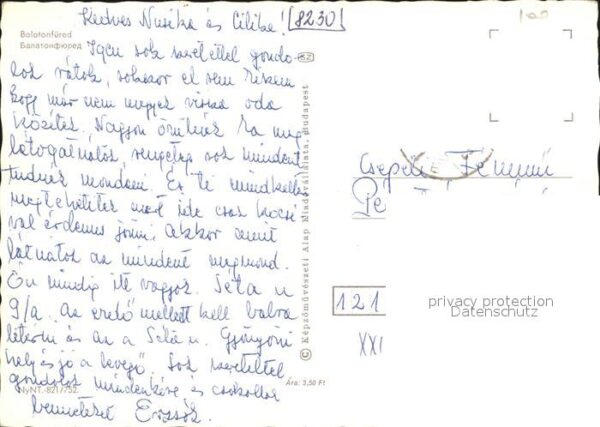 Kedves Nusika és Cilike! [8230]
Balatonfüred
Балатонфюред
Igen sok szeretettel gondo-
lok rátok, sokszor el sem hiszem
hogy már nem megyek vissza oda
közétek. Nagyon örülnék ha meg
látogatnátok, rengeteg sok mindent
tudnék mondani. Ezt mindketten
megtehetitek mert ide csak kocsi
val érdemes jönni, akkor amit
látnátok az mindent megmond.
Én mindig itt vagyok. Séta u
9/a. Az erdő mellett kell balra
letérni és az a Séta u. Gyönyörű
hely és jó a levegő. Sok szeretettel
gondolok mindenkire és csókollak
benneteket Erzsók.
NyNT.-821/752.
Ára: 3,50 Ft
© Képzőművészeti Alap Kiadóvállalata, Budapest
Csepeli Fémmű
121
XXI
privacy protection
Datenschutz